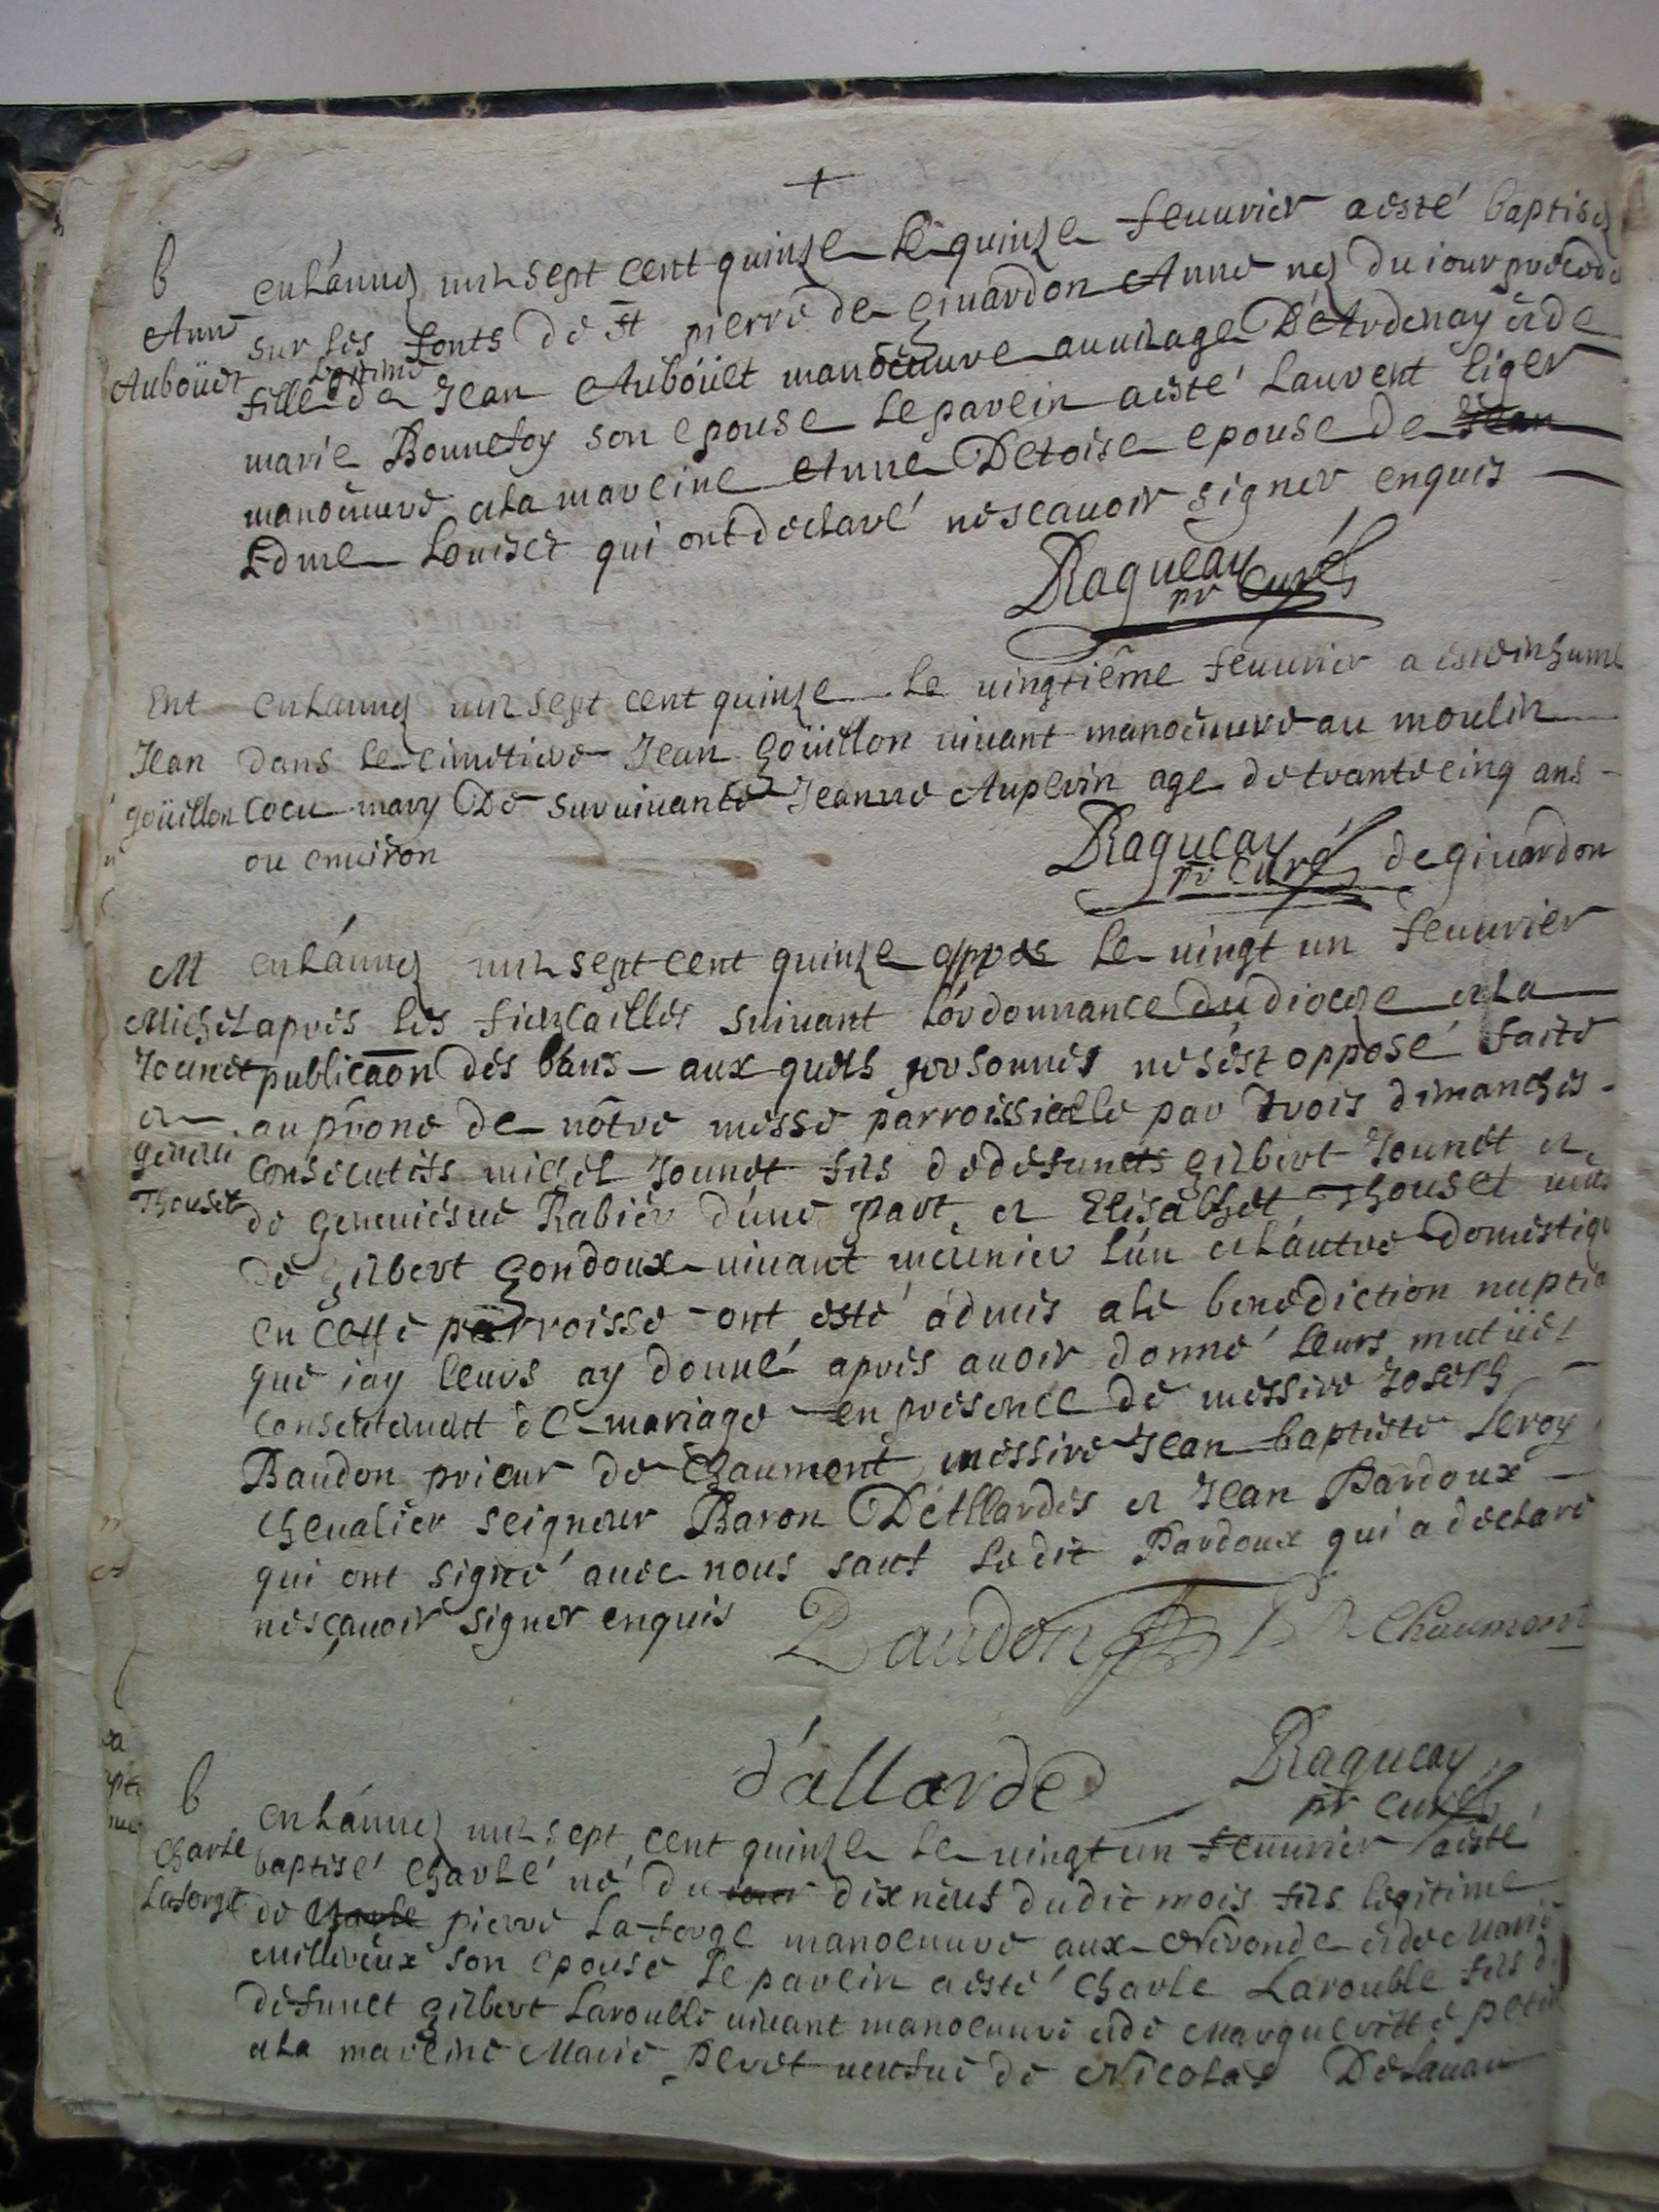 +
b
Anne
Auboüet
en l'année mil sept cent quinze le quinze feuurier a esté baptisé
sur les fonts de St pierre de giuardon Anne née du iour precede
legitime
fille de Jean Auboüet manoeuure au uilage D'Ardenay et de
marie Bonnefoy son epouse le parein a esté Laurent liger
manoeuure et la mareine Anne Detoise epouse de Jean
Edme Louiset qui ont declaré ne scauoir signer enquis
Ragueau
pr curé
Ent
Jean
goüillon
en l'année mil sept cent quinze le uingtiême feuurier a esté inhumé
dans le cimetiere Jean goüillon uiuant manoeuure au moulin
cocu mary De suruiuante Jeanne Auperin age de trante cinq ans
ou enuiron
Ragueau
pr curé de giuardon
M
Michel
Jounet
et
geneuie
Thouset
en l'année mil sept cent quinze appres le uingt un feuurier
apres les fiençailles suiuant l'ordonnance du diocese et la
publicaon des bans aux quels personnes ne s'est opposé faite
au prône de nôtre messe parroissielle par trois dimanches
consecutifs michel Jounet fils de defuncts gilbert Jounet et
de geneuiesue Rabier d'une part, et Elisabhet Thouset
de gilbert gondoux uiuant meunier l'un et l'autre domestiqu
en cette parroisse ont esté admis a le benediction nuptia
que i'ay leurs ay donné apres auoir donné leurs mutüel
consentement de mariage en presence de messire Joseph
Baudon prieur de Chaumont messire Jean baptiste Leroy
cheualier seigneur Baron D'Etllardes et Jean Pardoux
qui ont signé auec nous sauf le dit Pardoux qui a declaré
ne sçauoir signer enquis
Baudon Pr De Chaumont
d'allarde
Ragueau
pr curé
b
Charle
Laforge
en l'année mil sept cent quinze le uingt un feuurier a esté
baptisé Charle né du iour dix neuf dudit mois fils legitime
de Charle pierre Laforge manoeuure aux Neronde et de Marie
millereux son epouse Le parein a esté Charle Larouble fils d
defunct gilbert Larouble uiuant manoeuure et de Margueritte petit
et la mareine Marie Peret ueufue de Nicolas Delauau